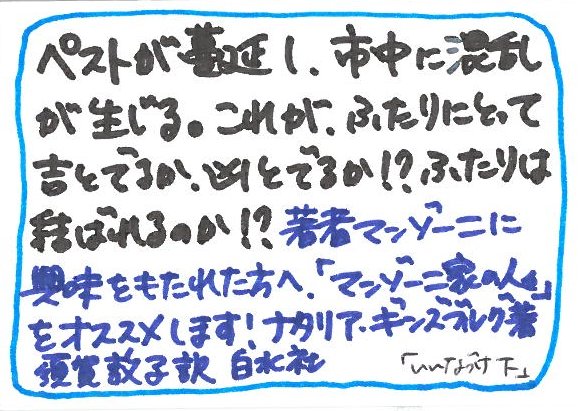 ペストが蔓延し、市中に混乱
が生じる。これが、ふたりにとって
吉とでるか、凶とでるか!?ふたりは
結ばれるのか!?著者マンゾーニに
興味をもたれた方へ、「マンゾーニ家の人々」
をオススメします!ナタリア・ギンズブルグ著
須賀敦子訳 白水社 「いいなづけ 下」